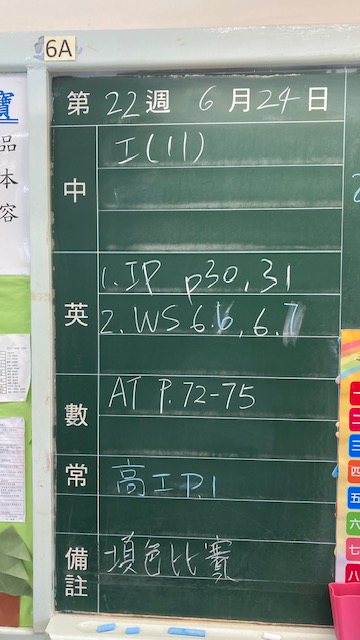 6A
第 22 週 6 月 24 日
中 工(11)
英 1. IP p30, 31
2. WS 6.6, 6.7
數 AT P.72-75
常 高工 P.1
備註 填色比賽
寶
品
本
容
一
二
三
四
五
六
七
八